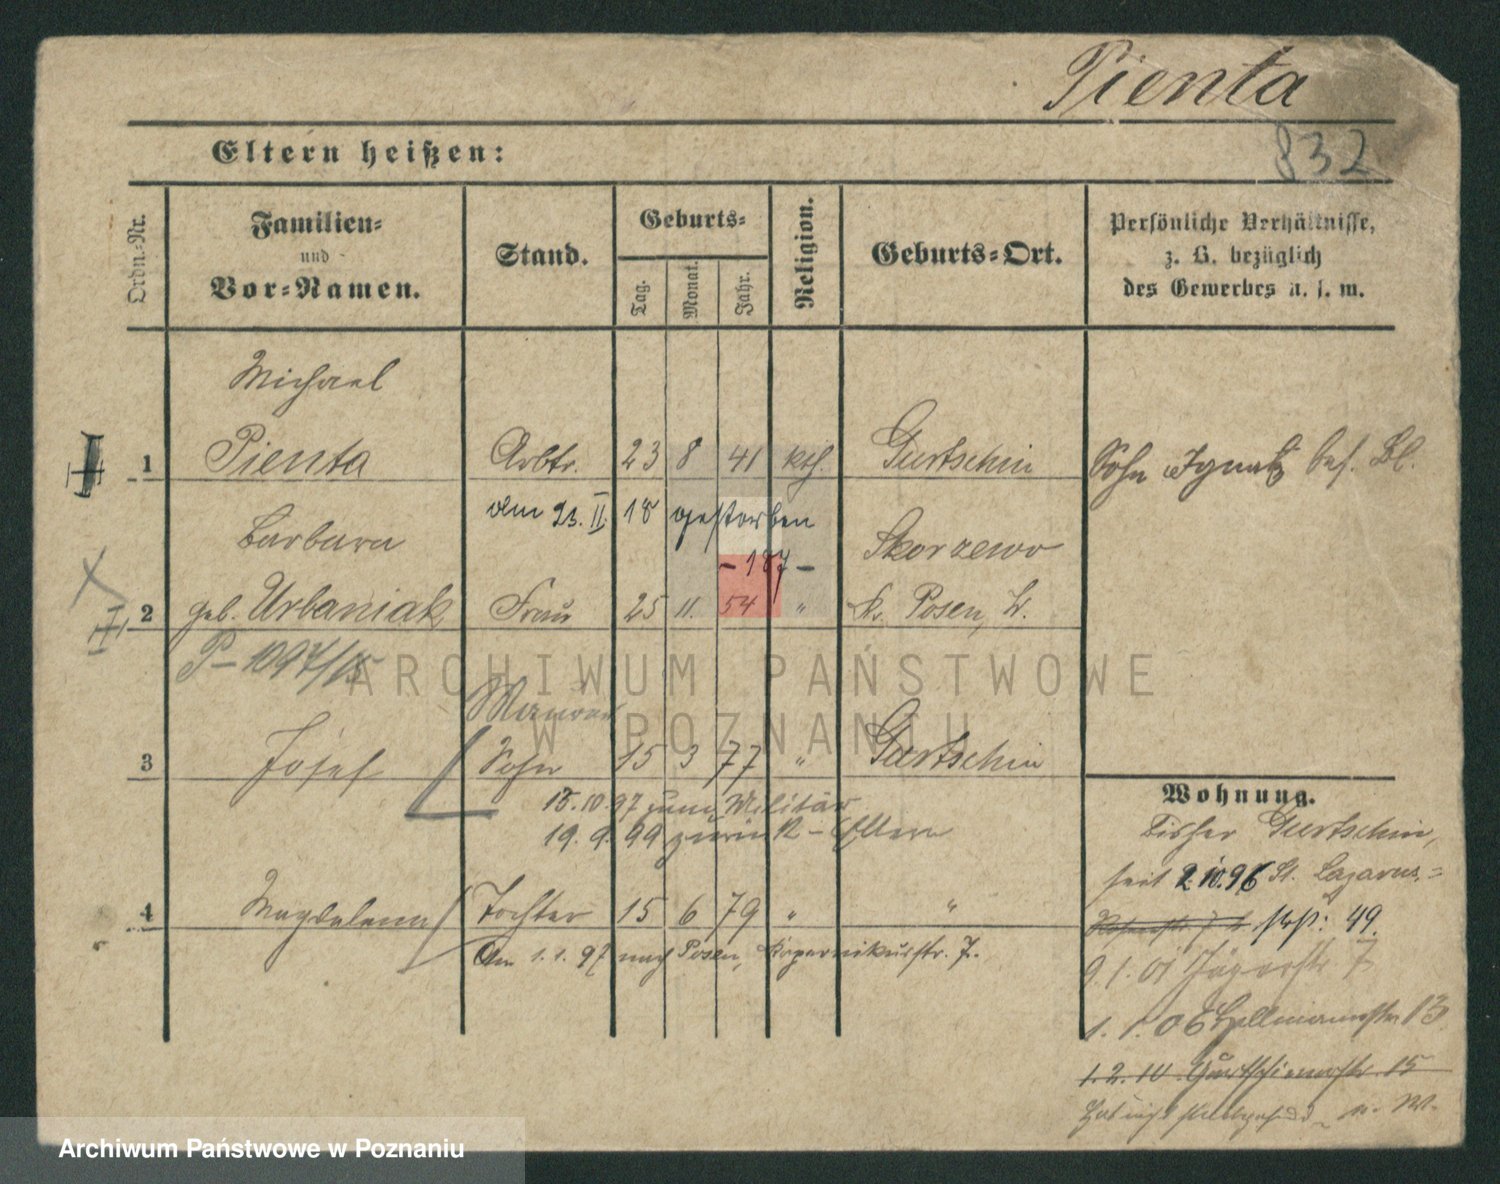 Pienta
832
Eltern heißen:
Ordn.-Nr.
Familien-
und
Vor-Namen.
Stand.
Geburts-
Tag.
Monat.
Jahr.
Religion.
Geburts-Ort.
Persönliche Verhältnisse,
z. B. bezüglich
des Gewerbes u. s. w.
Michael
1 Pienta Arbtr. 23 8 41 kth. Gurtschin Sohn Ignatz bes. Bl.
am 23. II. 18 gestorben
- 187 -
Barbara Skorzewo
2 geb. Urbaniak Frau 25 11. 54 " Kr. Posen, W.
P-1097/15
3 Josef Sohn 15 3 77 " Gurtschin
18.10.97 zum Militär
19.9.99 zurück - Eltern
4 Magdalena Tochter 15 6 79 " "
Am 1.1.97 nach Posen, Kopernikusstr. 7.
Wohnung.
Bisher Gurtschin,
seit 2.10.96 St. Lazarus,=
str: 49.
9.1.01 Jägerstr 7
1.1.06 Hellmannstr 13
1.2.10 Gurtschinerstr. 15
ARCHIWUM PAŃSTWOWE
W POZNANIU
Archiwum Państwowe w Poznaniu